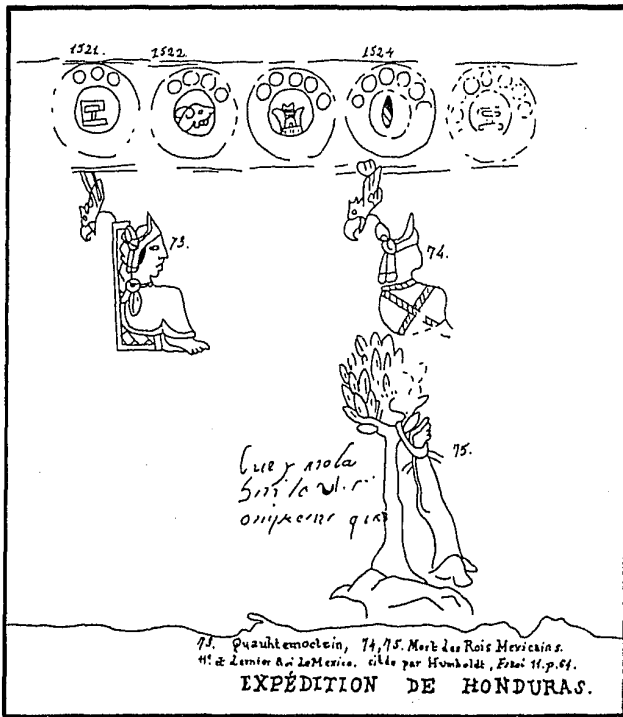 1521. 1522 1524
73.
74.
75.
73. Quauhtemoctzin, 74,75. Mort des Rois Mexicains.
11e et dernier Roi de Mexico. citée par Humboldt, Essai 11. p. 61.
EXPÉDITION DE HONDURAS.